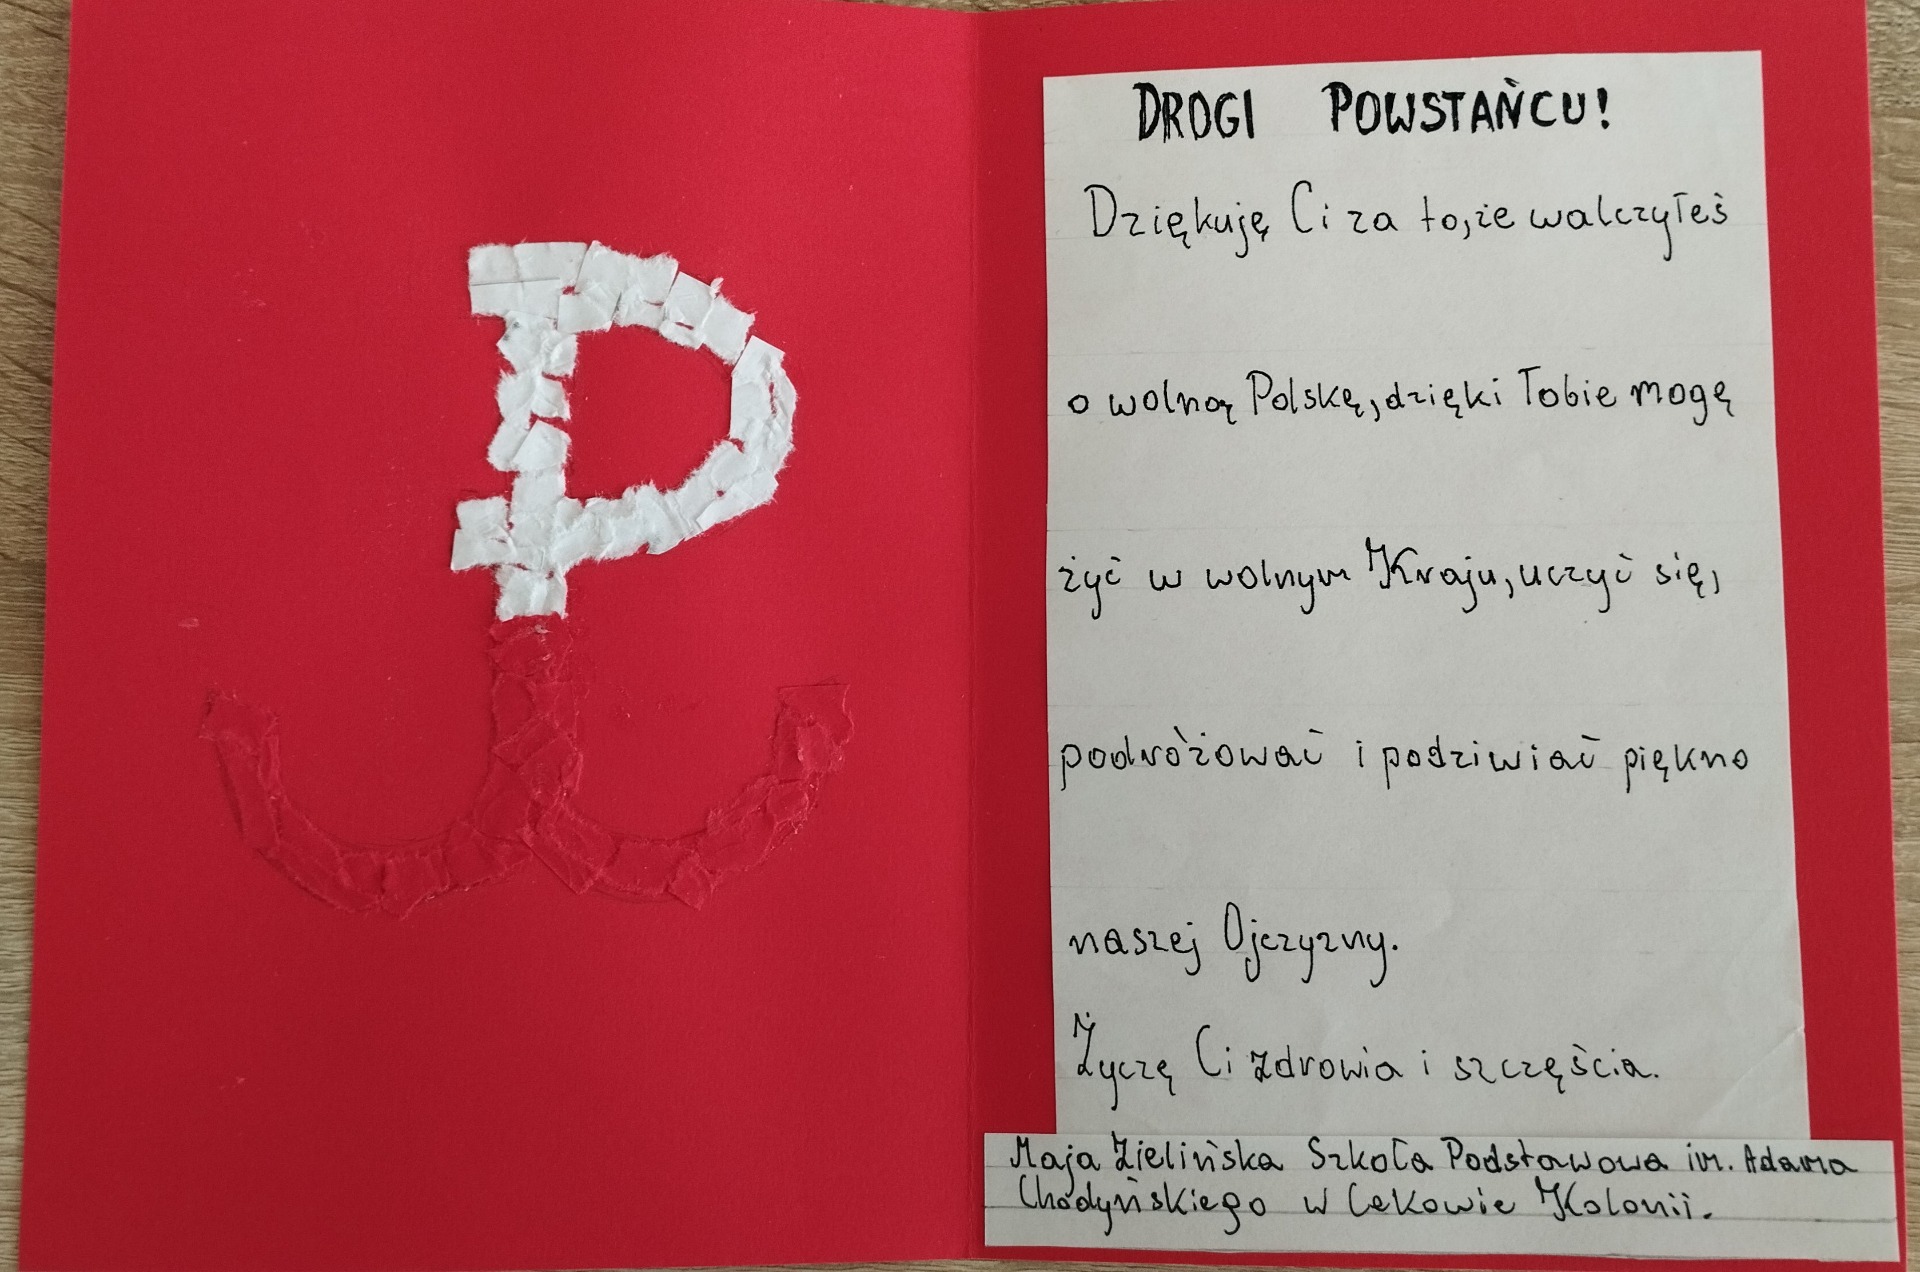 DROGI POWSTAŃCU!
Dziękuję Ci za to, że walczyłeś
o wolną Polskę, dzięki Tobie mogę
żyć w wolnym Kraju, uczyć się,
podróżować i podziwiać piękno
naszej Ojczyzny.
Życzę Ci zdrowia i szczęścia.
Maja Zielińska Szkoła Podstawowa im. Adama
Chodyńskiego w Cekowie Kolonii.